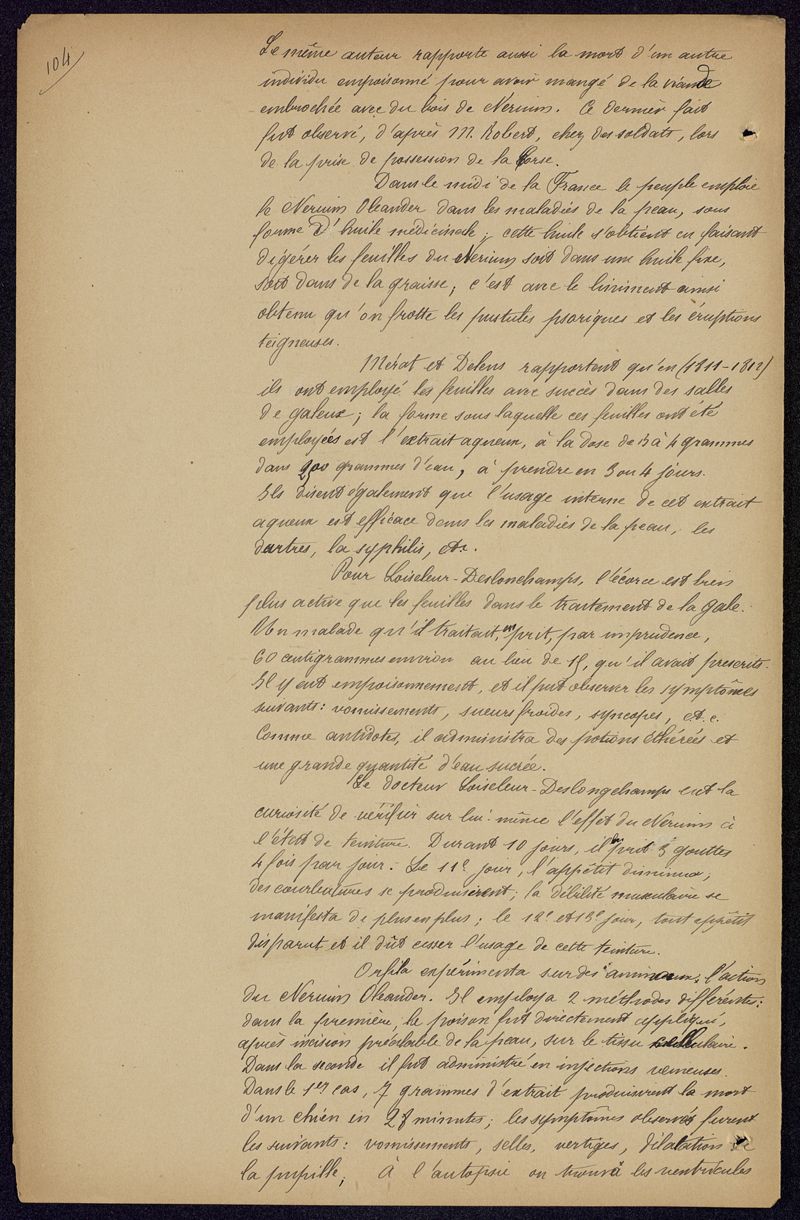 104
Le même auteur rapporte aussi la mort d'un autre
individu empoisonné pour avoir mangé de la viande
embrochée avec du bois de Nerium. Ce dernier fait
fut observé, d'après M. Robert, chez des soldats, lors
de la prise de possession de la Corse.
Dans le midi de la France le peuple emploie
le Nerium Oleander dans les maladies de la peau, sous
forme d'huile médicinale; cette huile s'obtient en faisant
digérer les feuilles du Nerium soit dans une huile fixe,
soit dans de la graisse; c'est avec le liniment ainsi
obtenu qu'on frotte les pustules psoriques et les éruptions
teigneuses.
Mérat et Delens rapportent qu'en (1811-1812)
ils ont employé les feuilles avec succès dans des salles
de galeux; la forme sous laquelle ces feuilles ont été
employées est l'extrait aqueux, à la dose de 3 à 4 grammes
dans 200 grammes d'eau, à prendre en 3 ou 4 jours.
Ils disent également que l'usage interne de cet extrait
aqueux est efficace dans les maladies de la peau, les
dartres, la syphilis, etc.
Pour Loiseleur-Deslonchamps, l'écorce est bien
plus active que les feuilles dans le traitement de la gale.
Un malade qu'il traitait, en prit, par imprudence,
60 centigrammes environ au lieu de 15, qu'il avait prescrits.
Il y eut empoisonnement, et il put observer les symptômes
suivants: vomissements, sueurs froides, syncopes, etc.
Comme antidotes, il administra des potions éthérées et
une grande quantité d'eau sucrée.
Le docteur Loiseleur-Deslongchamps eut la
curiosité de vérifier sur lui-même l'effet du Nerium à
l'état de teinture. Durant 10 jours, il prit 3 gouttes
4 fois par jour. Le 11e jour, l'appétit diminua,
des courbatures se produisirent; la débilité musculaire se
manifesta de plus en plus; le 12e et 13e jour, tout appétit
disparut et il dût cesser l'usage de cette teinture.
Orfila expérimenta sur des animaux l'action
du Nerium Oleander. Il employa 2 méthodes différentes:
dans la première, le poison fut directement appliqué,
après incision préalable de la peau, sur le tissu cellulaire.
Dans la seconde il fut administré en injections veineuses.
Dans le 1er cas, 7 grammes d'extrait produisirent la mort
d'un chien en 28 minutes; les symptômes observés furent
les suivants: vomissements, selles, vertiges, dilatation de
la pupille; à l'autopsie on trouva les ventricules